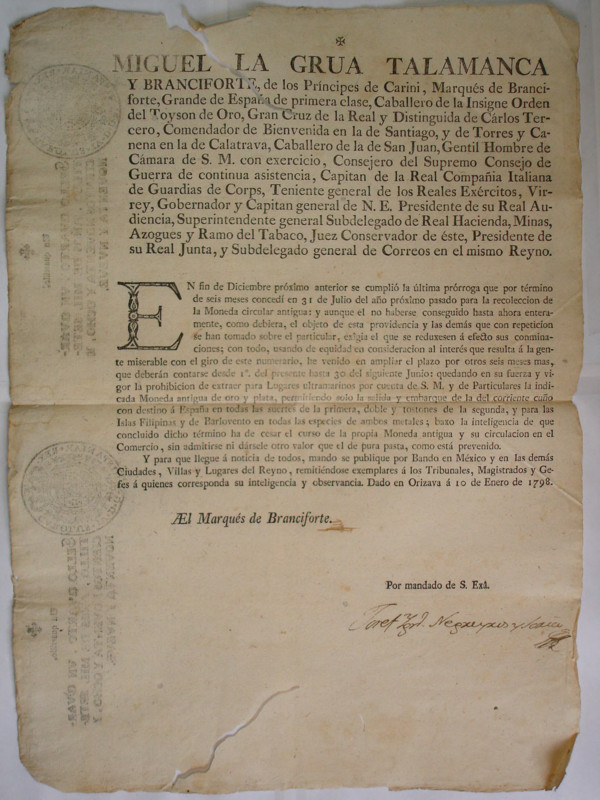 MIGUEL LA GRUA TALAMANCA
Y BRANCIFORTE, de los Príncipes de Carini, Marqués de Branci-
forte, Grande de España de primera clase, Caballero de la Insigne Orden
del Toyson de Oro, Gran Cruz de la Real y Distinguida de Cárlos Ter-
cero, Comendador de Bienvenida en la de Santiago, y de Torres y Ca-
nena en la de Calatrava, Caballero de la de San Juan, Gentil Hombre de
Cámara de S. M. con exercicio, Consejero del Supremo Consejo de
Guerra de continua asistencia, Capitan de la Real Compañia Italiana
de Guardias de Corps, Teniente general de los Reales Exércitos, Vir-
rey, Gobernador y Capitan general de N. E. Presidente de su Real Au-
diencia, Superintendente general Subdelegado de Real Hacienda, Minas,
Azogues y Ramo del Tabaco, Juez Conservador de éste, Presidente de
su Real Junta, y Subdelegado general de Correos en el mismo Reyno.
EN fin de Diciembre próximo anterior se cumplió la última prórroga que por término
de seis meses concedí en 31 de Julio del año próximo pasado para la recoleccion de
la Moneda circular antigua: y aunque el no haberse conseguido hasta ahora entera-
mente, como debiera, el objeto de esta providencia y las demás que con repeticion
se han tomado sobre el particular, exîgia el que se reduxesen á efecto sus conmi-
naciones; con todo, usando de equidad en consideracion al interés que resulta á la gen-
te miserable con el giro de este numerario, he venido en ampliar el plazo por otros seis meses mas,
que deberán contarse desde 1º. del presente hasta 30 del siguiente Junio: quedando en su fuerza y vi-
gor la prohibicion de extraer para Lugares ultramarinos por cuenta de S. M. y de Particulares la indi-
cada Moneda antigua de oro y plata, permitiendo solo la salida y embarque de la del corriente cuño
con destino á España en todas las suertes de la primera, doble y tostones de la segunda, y para las
Islas Filipinas y de Barlovento en todas las especies de ambos metales; baxo la inteligencia de que
concluido dicho término ha de cesar el curso de la propia Moneda antigua y su circulacion en el
Comercio, sin admitirse ni dársele otro valor que el de pura pasta, como está prevenido.
Y para que llegue á noticia de todos, mando se publique por Bando en México y en las demás
Ciudades, Villas y Lugares del Reyno, remitiéndose exemplares á los Tribunales, Magistrados y Ge-
fes á quienes corresponda su inteligencia y observancia. Dado en Orizava á 10 de Enero de 1798.
Æl Marqués de Branciforte.
Por mandado de S. Exâ.